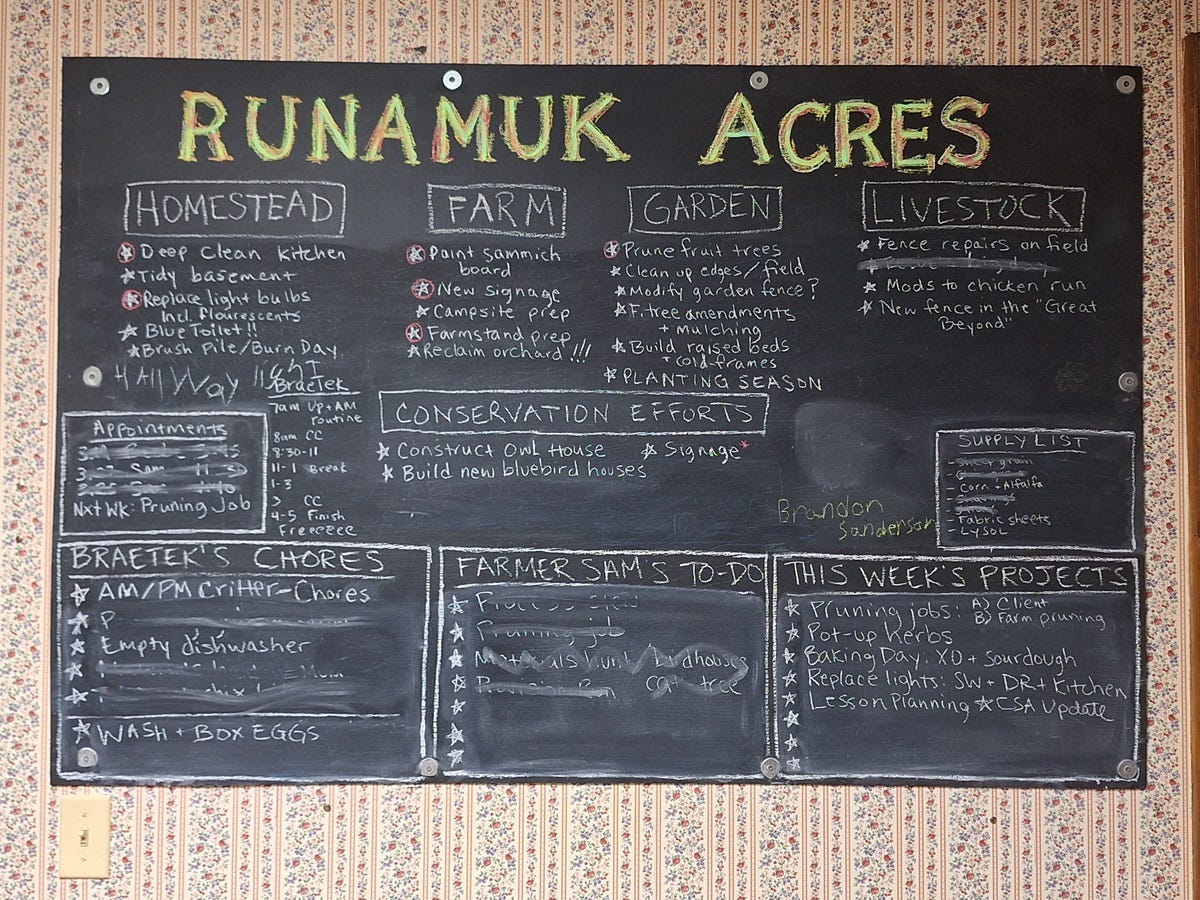 RUNAMUK ACRES
HOMESTEAD
Deep Clean Kitchen
Tidy basement
Replace light bulbs
Incl. flourescents
Blue Toilet!!
Brush Pile/Burn Day
HAllWay
FARM
Paint sammich
board
New signage
Campsite prep
Farmstand prep
Reclaim orchard!!!
GARDEN
Prune fruit trees
Clean up edges/field
Modify garden fence?
F.tree amendments
+ mulching
Build raised beds
+ cold frames
PLANTING SEASON
LIVESTOCK
Fence repairs on field
Mods to chicken run
New fence in the "Great
Beyond"
Appointments
Nxt WK: Pruning Job
BraeTek
7am Up + AM
routine
8am CC
8:30-11
11-1 Break
1-3
3 CC
4-5 Finish
Freeeeee
CONSERVATION EFFORTS
Construct Owl House
Signage*
Build new bluebird houses
Brandon
Sanderson
SUPPLY LIST
- Corn + Alfalfa
- Fabric sheets
- Lysol
BRAETEK'S CHORES
AM/PM Critter-Chores
P
Empty dishwasher
WASH + BOX EGGS
FARMER SAM'S TO-DO
Pruning job
Materials hunt birdhouses
cat tree
THIS WEEK'S PROJECTS
Pruning jobs: A) Client
B) Farm pruning
Pot-up Herbs
Baking Day: XO + Sourdough
Replace lights: SW + DR + Kitchen
Lesson Planning ★CSA Update